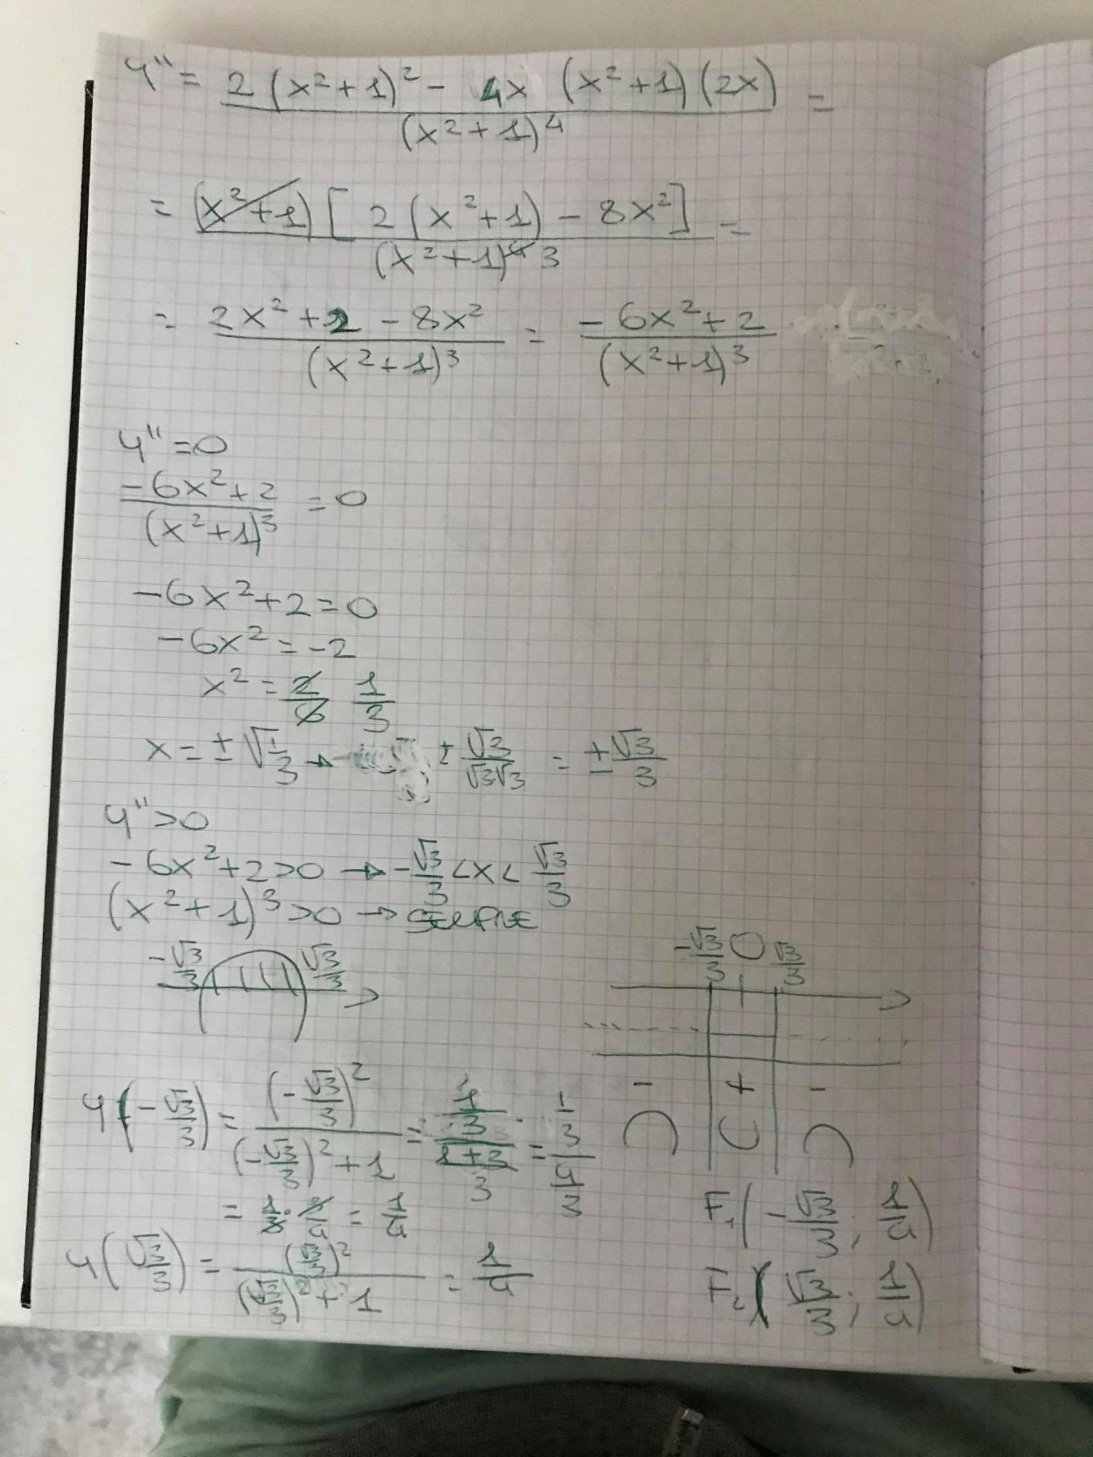 y'' = 2(x²+1)² - 4x (x²+1)(2x) / (x²+1)⁴ =
= (x²+1)[2(x²+1) - 8x²] / (x²+1)⁴ 3 =
= 2x²+2-8x² / (x²+1)³ = -6x²+2 / (x²+1)³
y''=0
-6x²+2 / (x²+1)³ = 0
-6x²+2=0
-6x²=-2
x² = 2/6 1/3
x = ±√1/3 → ± √3/√3√3 = ± √3/3
y''>0
-6x²+2>0 → -√3/3 <x< √3/3
(x²+1)³>0 → SEMPRE
-√3/3 √3/3
-√3/3 0 √3/3
- + -
y(-√3/3) = (-√3/3)² / (-√3/3)²+1 = 1/3 / 1+3/3 = 1/3 / 4/3
= 1/3 · 3/4 = 1/4
y(√3/3) = (√3/3)² / (√3/3)²+1 = 1/4
F₁(-√3/3; 1/4)
F₂(√3/3; 1/4)